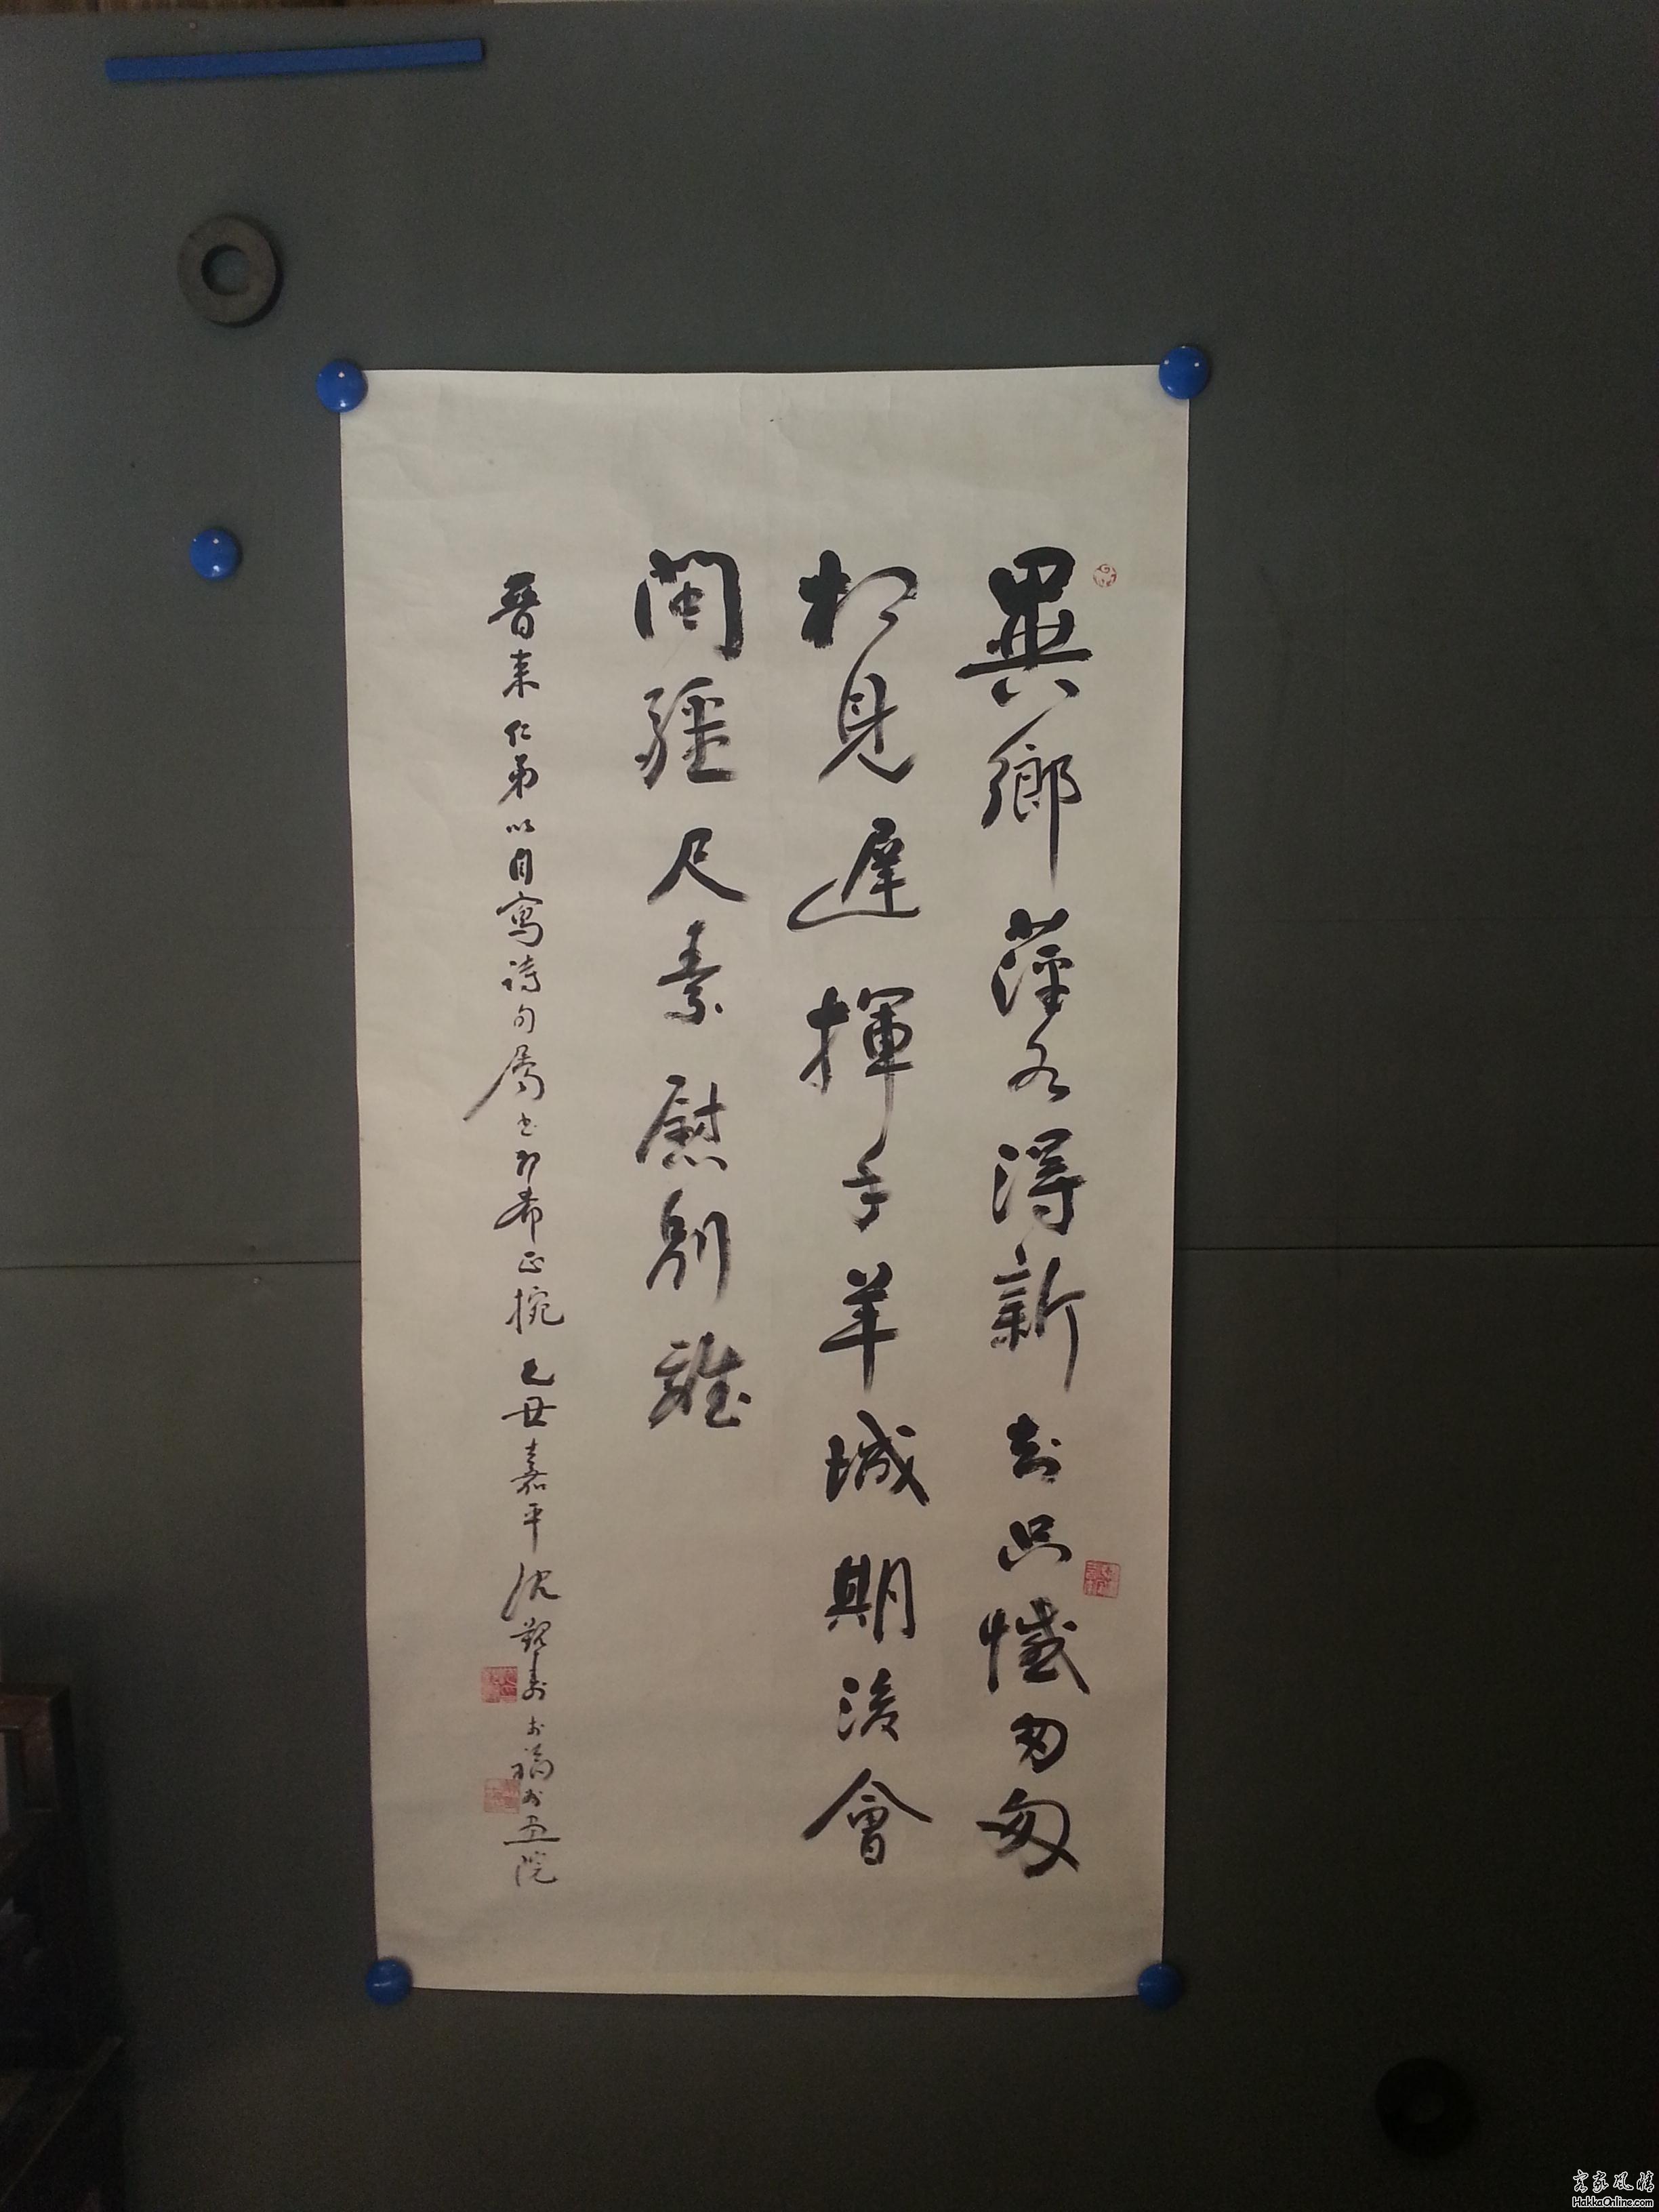 異鄉萍水得新知只憾匆匆
相見遲揮手羊城期後會
閩疆尺素慰別離
晉来仁弟以自寫诗句屬书即希正挽 乙丑嘉平沈覲壽於福州画院
客家風情
HakkaOnline.com